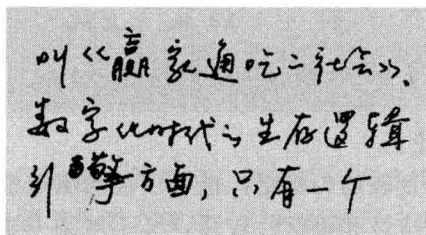 叫《赢家通吃二社会》、
数字化时代的生存逻辑
引擎方面，只有一个